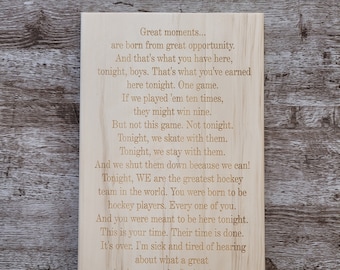 Great moments...
are born from great opportunity.
And that's what you have here,
tonight, boys. That's what you've earned
here tonight. One game.
If we played 'em ten times,
they might win nine.
But not this game. Not tonight.
Tonight, we skate with them.
Tonight, we stay with them.
And we shut them down because we can!
Tonight, WE are the greatest hockey
team in the world. You were born to be
hockey players. Every one of you.
And you were meant to be here tonight.
This is your time. Their time is done.
It's over. I'm sick and tired of hearing
about what a great